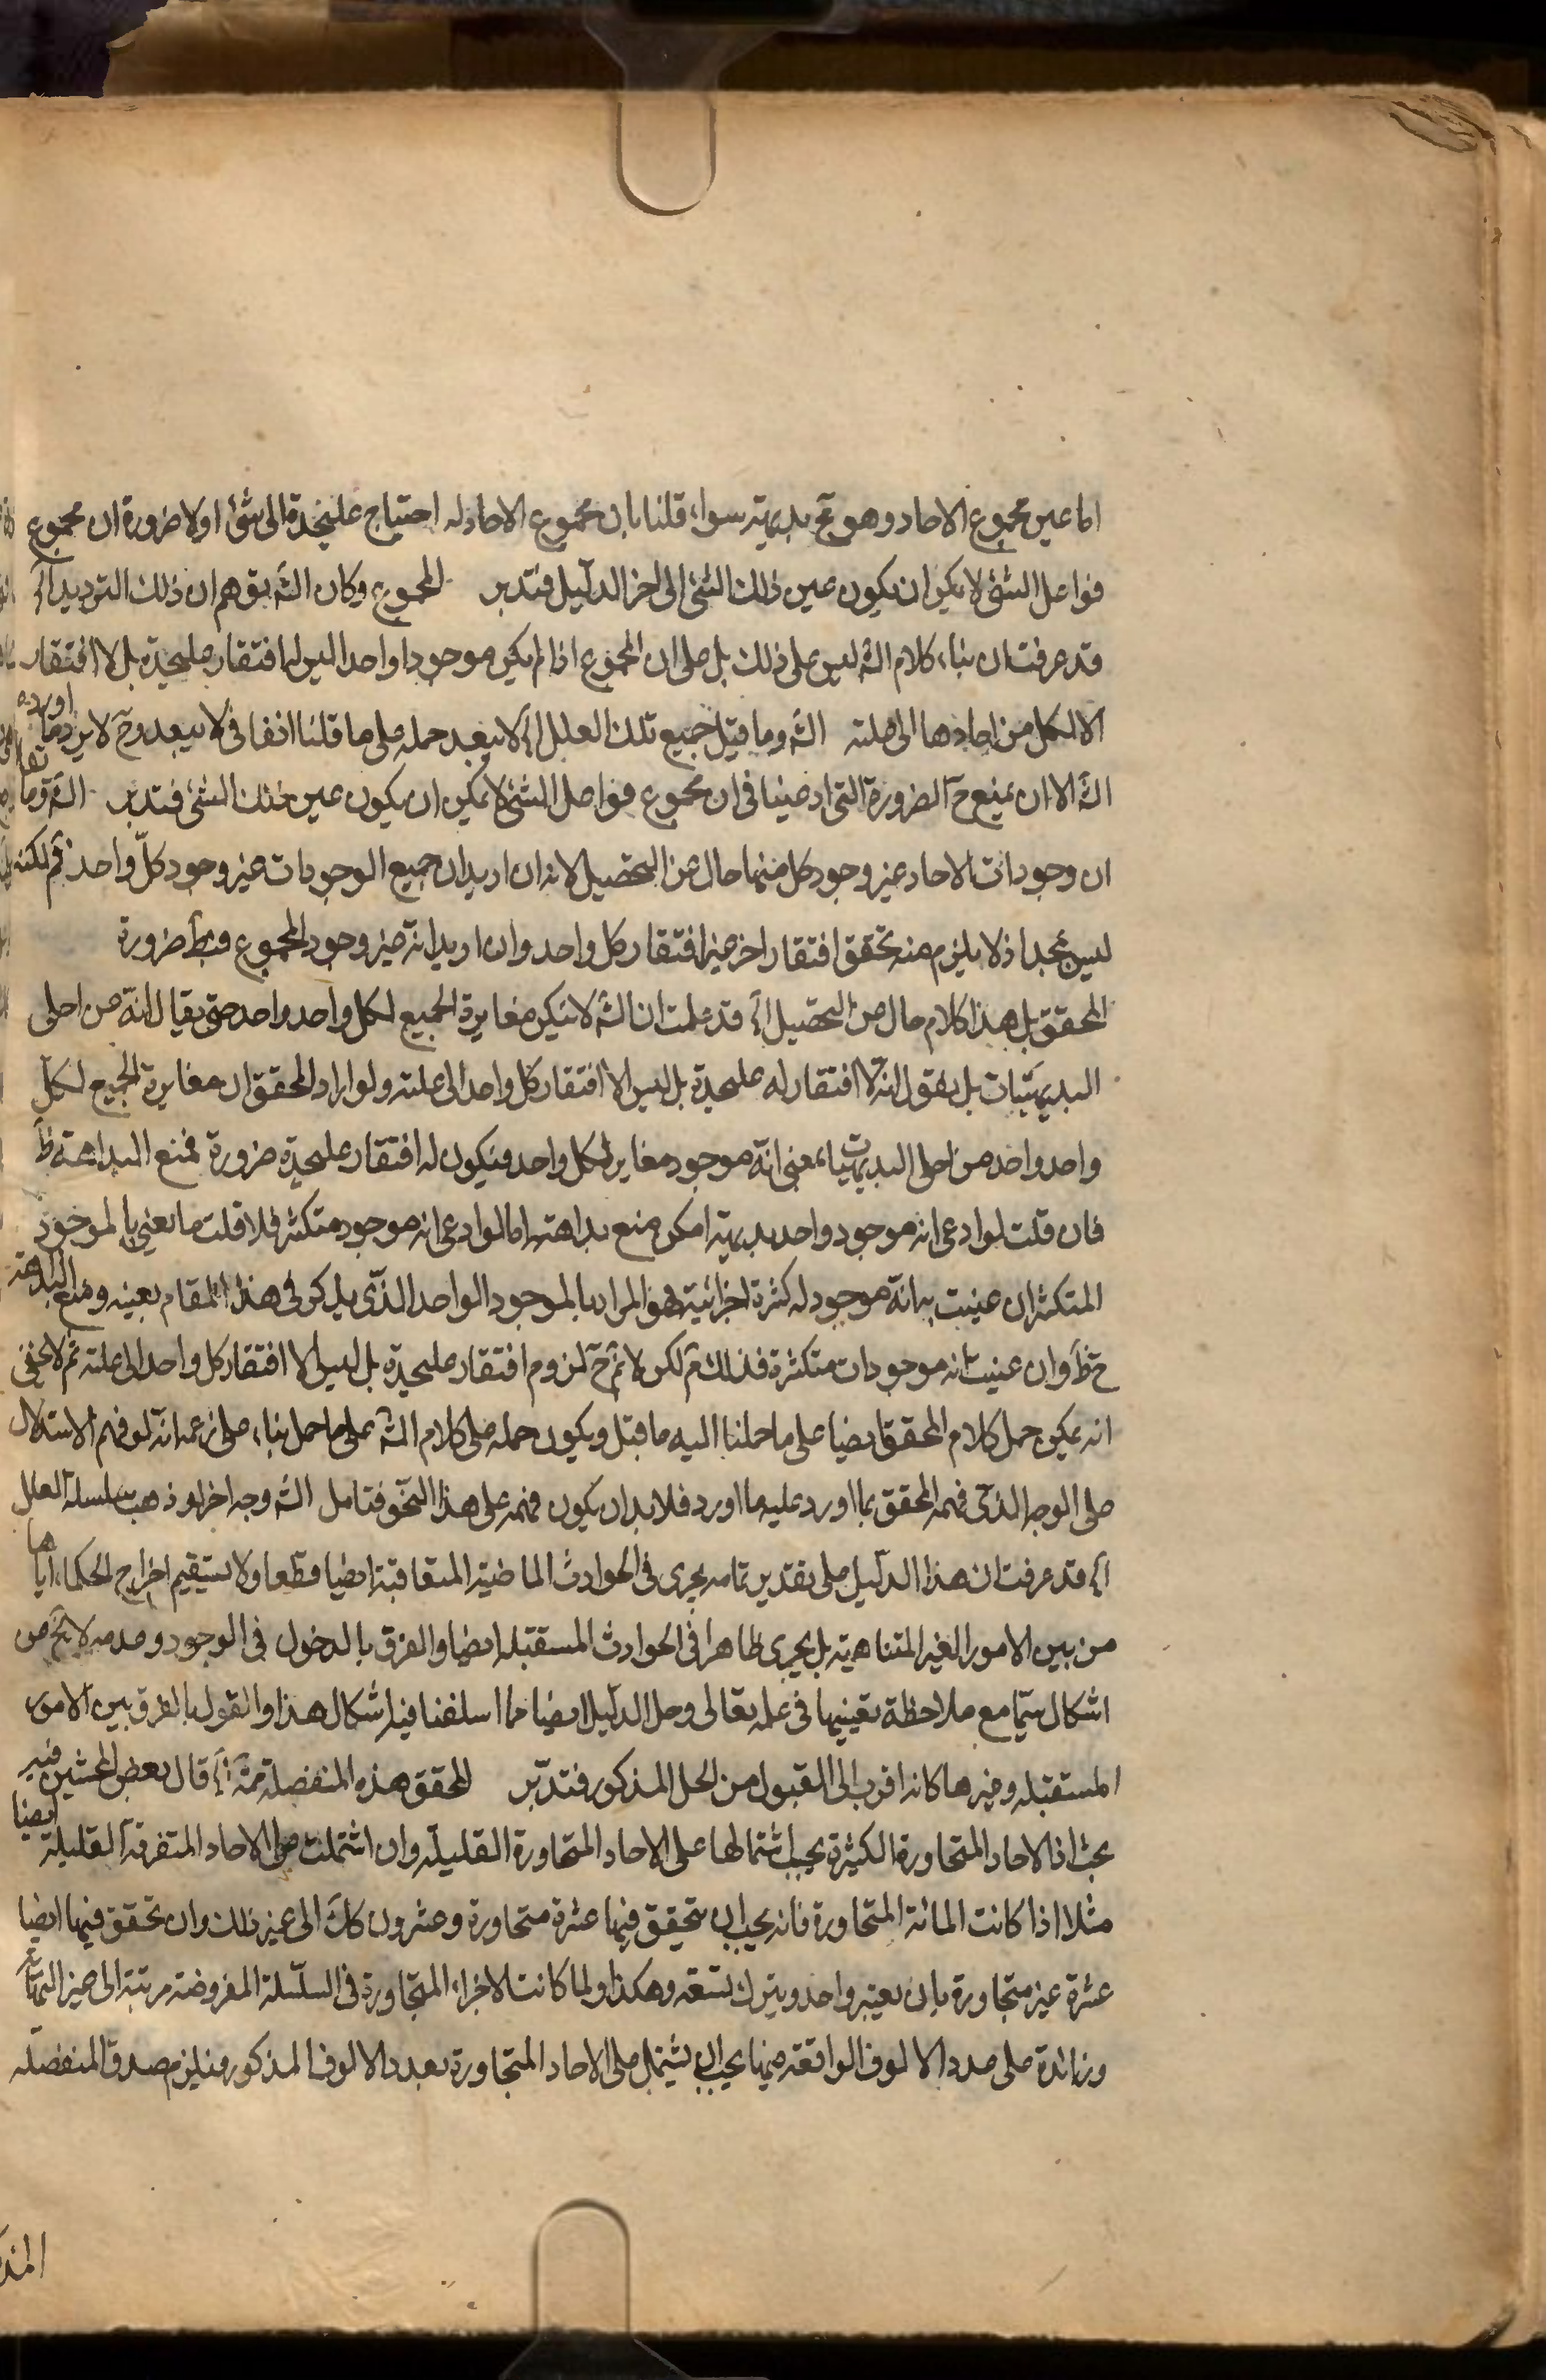 اما عين مجموع الاحاد وهو تج بديهية سواء قلنا بان مجموع الاحاد له احتياج عليحدة الى شئ اولا ضرورة ان مجموع
فواعل الشئ لا يمكن ان يكون عين ذلك الشئ الى اخر الدليل فتدبر المجموع وكان الش بتوهم ان ذلك الترديد اه
قد عرفت ان بناء كلام الش ليس على ذلك بل على ان المجموع اذا لم يكن موجودا واحدا ليس له افتقار عليحدة بل لا افتقار
الا لكل من احادها الى علته الش وما قيل جميع تلك العلل اه لا يبعد حمله على ما قلنا انفا فى لا يبعد وح لا يرد ما اورده
الش الا ان يمنع ح الضرورة التى ادعينا فى ان مجموع فواعل الشئ لا يمكن ان يكون عين ذلك الشئ فتدبر الش وما يقا
ان وجودات الاحاد غير وجود كل منها خال عن التحصيل لانه ان اريد ان جميع الوجودات غير وجود كل واحد فم لكنه
ليس بمجد اذ لا يلزم منه تحقق افتقار اخر غير افتقار كل واحد وان اريد انه غير وجود المجموع فبط ضرورة
المحقق بل هذا كلام خال من التحصيل اه قد علمت ان الش لا ينكر مغايرة الجميع لكل واحد واحد حتى يقال انه من اجلى
البديهيات بل يقول انه لا افتقار له عليحدة بل ليس الا افتقار كل واحد الى علته ولو اراد المحقق ان مغايرة الجميع لكل
واحد واحد من اجلى البديهيات بمعنى انه موجود مغاير لكل واحد فيكون له افتقار عليحدة ضرورة فمنع البداهة ظ
فان قلت لو ادعى انه موجود واحد بديهية امكن منع بداهته اما لو ادعى انه موجود متكثر فلا قلت ما يعنى بالموجود
المتكثر ان عنيت به انه موجود له كثرة اجزائية فهو المراد بالموجود الواحد الذى يذكر فى هذا المقام بعينه ومنع البداهة
ح ظ وان عنيت انه موجودات متكثرة فذلك م لكن لا ثم ح لزوم افتقار عليحدة بل ليس الا افتقار كل واحد الى علته ثم لا يخفى
انه يمكن حمل كلام المحقق ايضا على ما حملنا اليه ما قيل ويكون حمله على كلام الش على ما حمل بناء على زعمه انه لو فهم الاستدلال
على الوجه الذى فهمه المحقق بما اورد عليه ما اورد فلا بد ان يكون فهمه على هذا النحو فتامل الش وجه اخر لو ذهب سلسلة العلل
اه قد عرفت ان هذا الدليل على تقدير تمامه يجرى فى الحوادث الماضية المتعاقبة ايضا قطعا ولا يستقيم اخراج الحكماء اياها
من بين الامور الغير المتناهية بل يجرى ظاهرا فى الحوادث المستقبله ايضا والفرق بالدخول فى الوجود وعدمه لا يخ من
اشكال سيما مع ملاحظة تعينها فى علمه تعالى وحل الدليل ايضا مما اسلفنا فيه اشكال هذا والقول بالفرق بين الامور
المستقبله وغيرها كانه اقرب الى القبول من الحل المذكور فتدبر المحقق هذه المنفصلة ثمة اه قال بعض المحشين فيه
بحث اذ الاحاد المتجاورة الكثيرة يجب اشتمالها على الاحاد المتجاورة القليلة وان اشتملت على الاحاد المتفرقة القليلة ايضا
مثلا اذا كانت المائة المتجاورة فانه يجب ان يتحقق فيها عشرة متجاورة وعشرون كك الى غير ذلك وان تحقق فيها ايضا
عشرة غير متجاورة بان يعتبر واحد ويترك تسعة وهكذا ولما كانت الاجزاء المتجاورة فى السلسلة المفروضة مرتبة الى غير النهاية
وزائدة على عدد الالوف الواقعة فيها يجب ان يشتمل على الاحاد المتجاورة بعدد الالوف المذكور فيلزم صدق المنفصلة